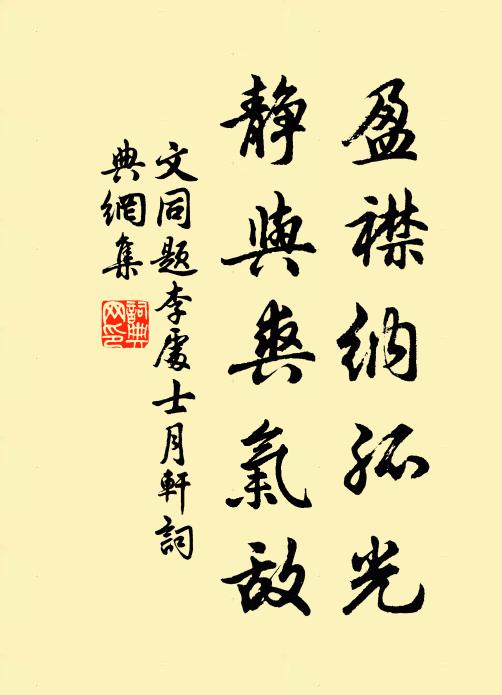 盈襟納孤光
静與爽氣敵
文同題李處士月軒詞
典網集
詞典網印